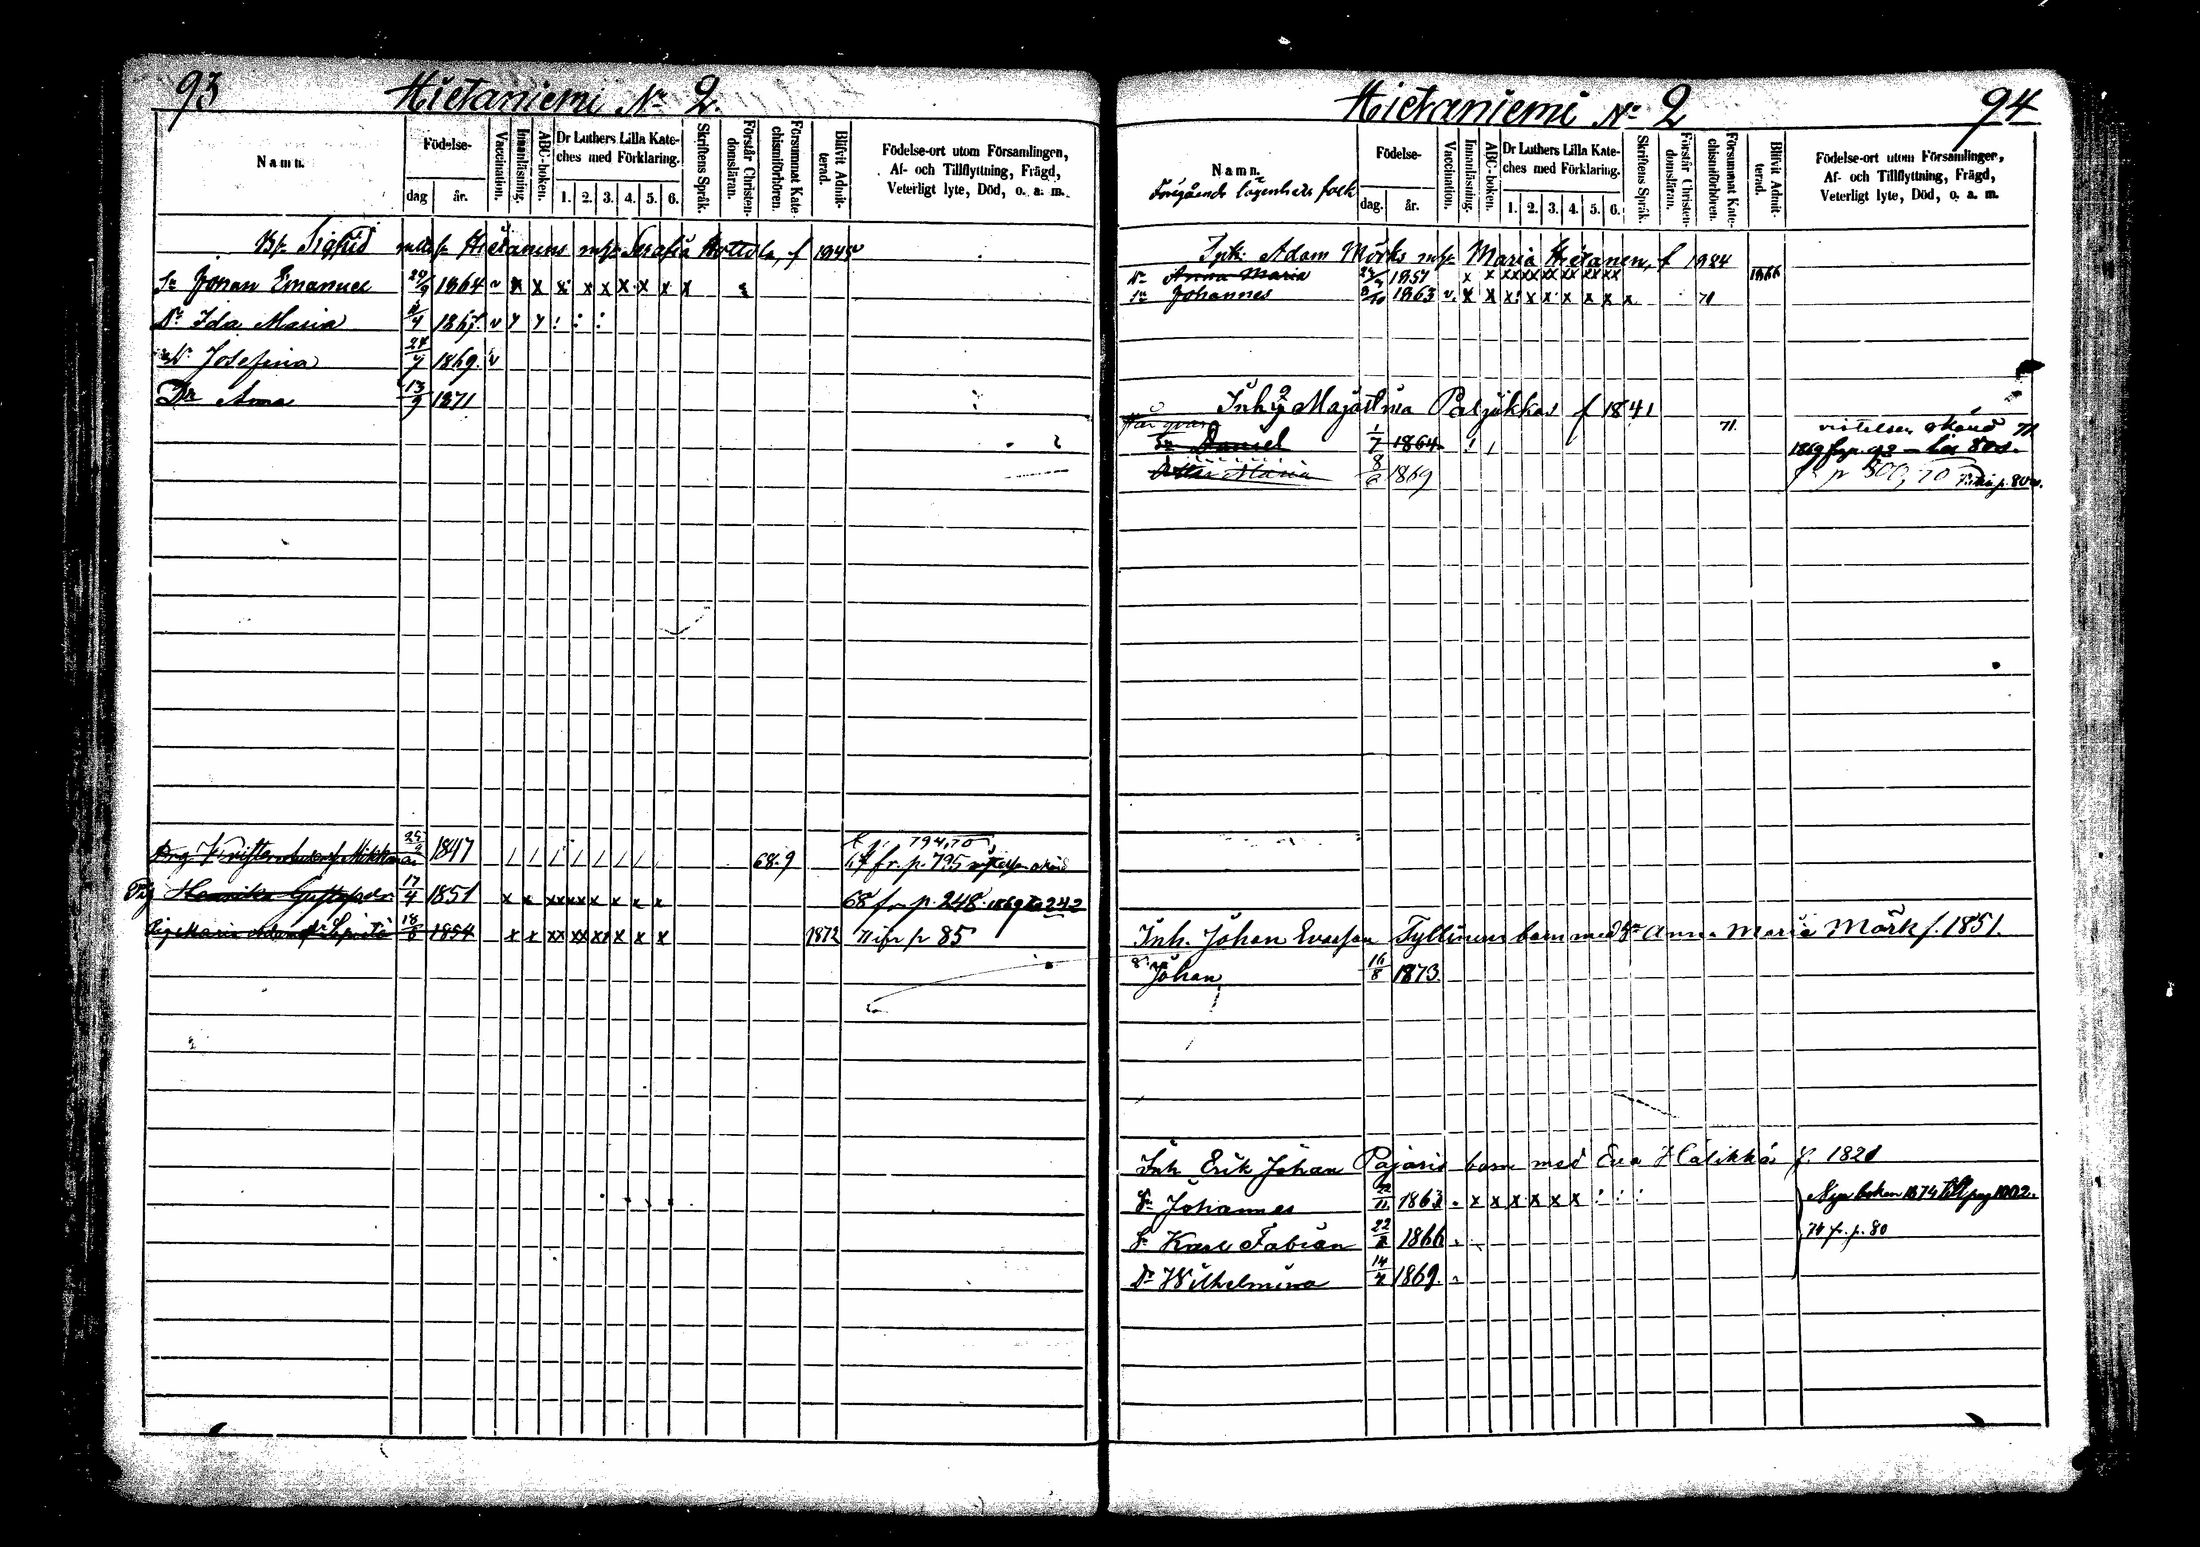 93 Hietaniemi No 2.
Namn.
Födelse-
dag år.
Vaccination.
Innanläsning.
ABC-boken.
Dr Luthers Lilla Kate-
ches med Förklaring.
1. 2. 3. 4. 5. 6.
Skriftens Språk.
Förstår Christen-
domsläran.
Försummat Kate-
chismiförhören.
Blifvit Admit-
terad.
Födelse-ort utom Församlingen,
Af- och Tillflyttning, Frägd,
Veterligt lyte, Död, o. a. m.
Sigfrid Hietanens Serafia f 1845
Sn Johan Emanuel 29/9 1864 v x x x x x x x x x
Dr Ida Maria 1867 v
Dr Josefina 24/7 1869. v
Dr Anna 13/9 1871
Drg Mikk 25 1847 / / / / / / / / 68.9 794,70
67 fr. p. 795
Pig Henrika Gustafsdr 17/4 1851 x x xx xx x x x x 68 fr p. 248. 1869 to 242
Pig Maria 18/8 1854 x x xx xx xx x x x 1872 71 ifr p 85
Hietaniemi No 2 94
Namn.
Föregående lägenhets folk
Födelse-
dag. år.
Vaccination.
Innanläsning.
ABC-boken.
Dr Luthers Lilla Kate-
ches med Förklaring.
1. 2. 3. 4. 5. 6.
Skriftens Språk.
Förstår Christen-
domsläran.
Försummat Kate-
chismiförhören.
Blifvit Admit-
terad.
Födelse-ort utom Församlingen,
Af- och Tillflyttning, Frägd,
Veterligt lyte, Död, o. a. m.
Adam Mörks Maria Hietanen, f 1824
Dr Anna Maria 1851 x x xx xx xx xx xx xx 1866
Sn Johannes 8/10 1863 v. x x x x x x x x x 71
Inh Maja Stina f 1841
71. vistelse okänd 71
Sn Daniel 1/7 1864 1869 fr p. 93
Maria 8/6 1869 p 300, 70
Inh. Johan Evasson Tyllinens barn med Anna Maria Mörk f. 1851.
Johan 16/8 1873
Inh Erik Johan Pajaris barn med Eva Halikka f. 1821
Sn Johannes 22/11 1863 x x x x x x Nya boken 1874 till pag 1002.
Sn Karl Fabian 22 1866 74 fr. p. 80
Dr Wilhelmina 14 1869